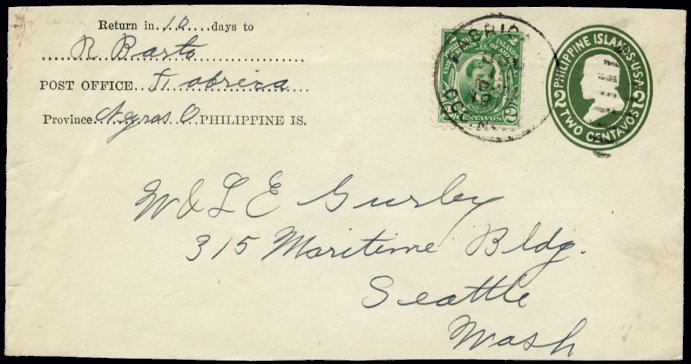 Return in 10 days to
R Barto
POST OFFICE Fabrica
Province Negros O. PHILIPPINE IS.
PHILIPPINE ISLANDS
2 CENTAVOS 2
PHILIPPINE ISLANDS·U.S.A.
2 TWO CENTAVOS 2
W & L E Gurley
315 Maritime Bldg.
Seattle
Wash